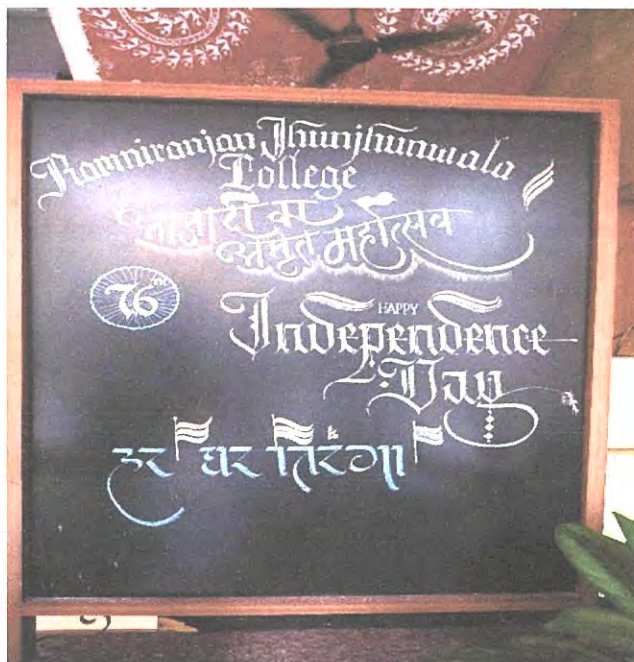 Ramniranjan Jhunjhunwala
College
आज़ादी का
अमृत महोत्सव
76th
HAPPY
Independence
Day
हर घर तिरंगा